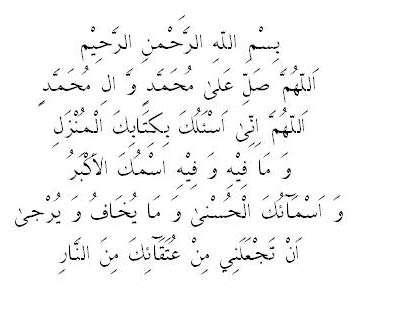 بِسْمِ اللّهِ الرَّحْمنِ الرَّحِيْمِ
اَللّهُمَّ صَلِّ عَلىٰ مُحَمَّدٍ وَّ الِ مُحَمَّدٍ
اَللّهُمَّ اِنِّىْ اَسْئَلُكَ بِكِتَابِكَ الْمُنْزَلِ
وَ مَا فِيْهِ وَ فِيْهِ اسْمُكَ الأَكْبَرُ
وَ اَسْمَآئُكَ الْحُسْنىٰ وَ مَا يُخَافُ وَ يُرْجىٰ
اَنْ تَجْعَلَنِي مِنْ عُتَقَآئِكَ مِنَ النَّارِ